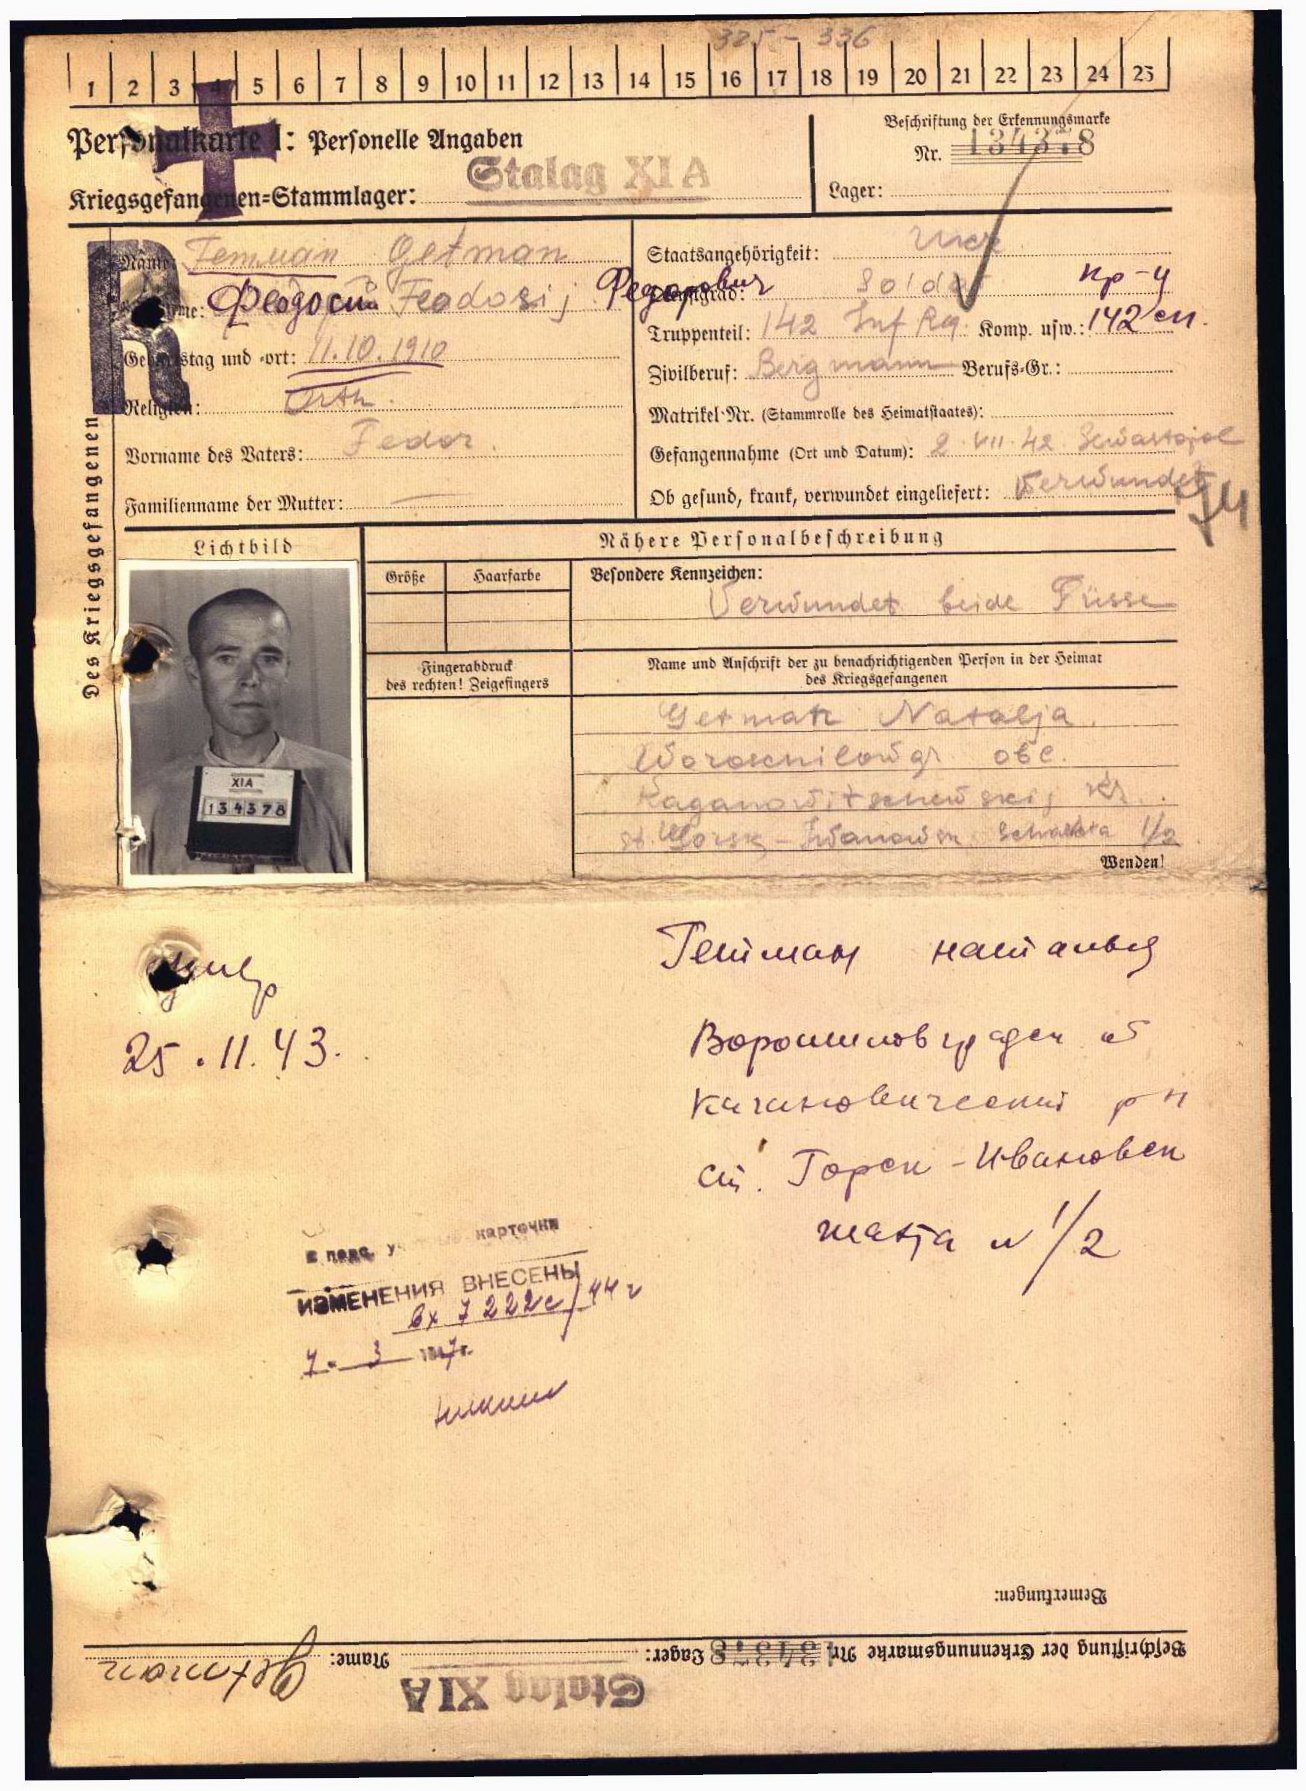 325 - 336
1 2 3 4 5 6 7 8 9 10 11 12 13 14 15 16 17 18 19 20 21 22 23 24 25
Personalkarte I: Personelle Angaben
Kriegsgefangenen-Stammlager: Stalag XI A
Beschriftung der Erkennungsmarke
Nr. 134378
Lager:
R
Des Kriegsgefangenen
Name: Гетман Getman
Vorname: Феодосий Feodosij Федорович
Geburtstag und -ort: 11.10.1910
Religion: Orth.
Vorname des Vaters: Fedor.
Familienname der Mutter: —
Staatsangehörigkeit: Ukr
Dienstgrad: Soldat кр-ц
Truppenteil: 142 Inf Rg. Komp. usw.: 142 сп.
Zivilberuf: Bergmann Berufs-Gr.:
Matrikel-Nr. (Stammrolle des Heimatstaates):
Gefangennahme (Ort und Datum): 2.VII.42 Sewastopol
Ob gesund, krank, verwundet eingeliefert: Verwundet
Lichtbild
XIA
134378
Nähere Personalbeschreibung
Größe
Haarfarbe
Besondere Kennzeichen:
Verwundet beide Füsse
Fingerabdruck
des rechten! Zeigefingers
Name und Anschrift der zu benachrichtigenden Person in der Heimat
des Kriegsgefangenen
Getman Natalja.
Woroschilowgr obl.
Kaganowitschewskij Kr.
st. Gorsk-Iwanowsk Schachta 1/2
Wenden!
умер
25.11.43.
Гетман наталья
Ворошиловградск об
Кагановический р н
ст. Горск-Ивановск
шахта № 1/2
в перс. учетные карточки
ИЗМЕНЕНИЯ ВНЕСЕНЫ
вх 7222с/44 г
7. 3 1947 г.
Bemerkungen:
Beschriftung der Erkennungsmarke Nr. 134378 Lager: Stalag XI A Name: Getman